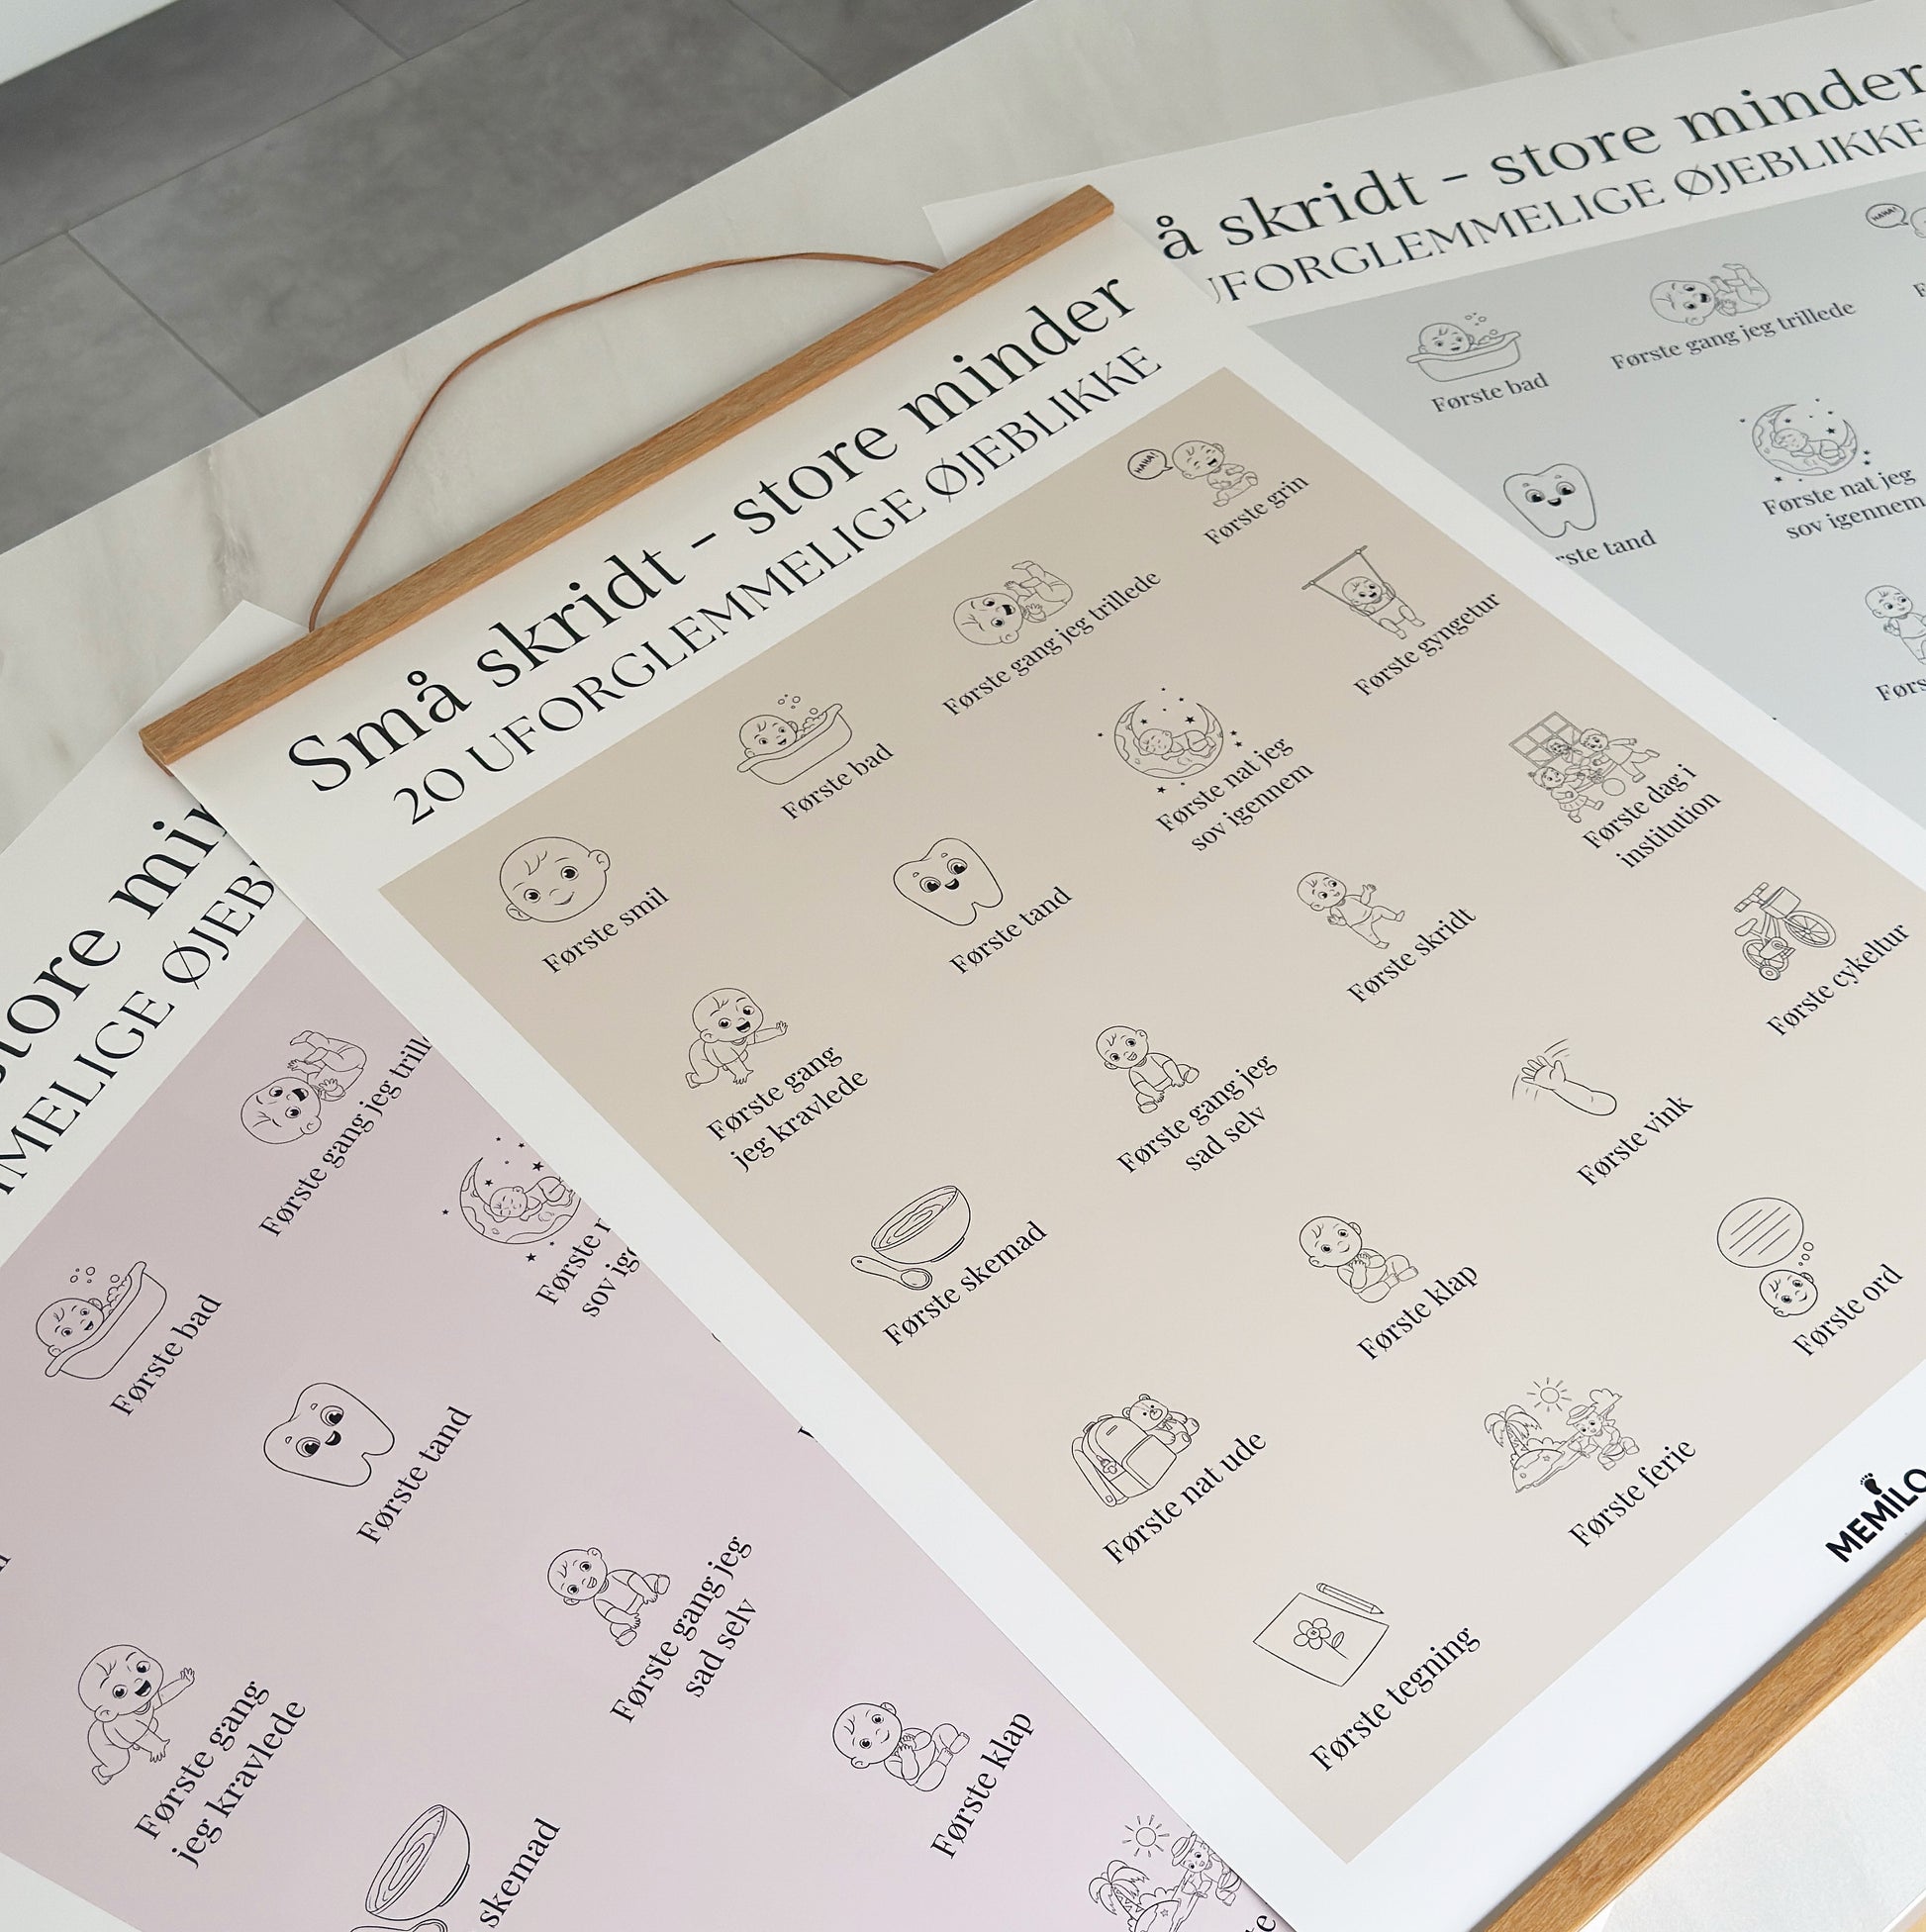 Små skridt – store minder
20 UFORGLEMMELIGE ØJEBLIKKE
Første smil
Første bad
Første gang jeg trillede
HAHA!
Første grin
Første gang
jeg kravlede
Første tand
Første nat jeg
sov igennem
Første gyngetur
Første skemad
Første gang jeg
sad selv
Første skridt
Første dag i
institution
Første nat ude
Første klap
Første vink
Første cykeltur
Første tegning
Første ferie
Første ord
MEMILO
å skridt – store minder
UFORGLEMMELIGE ØJEBLIKKE
HAHA!
Første bad
Første gang jeg trillede
rste tand
Første nat jeg
sov igennem
Førs
store min
MMELIGE ØJEB
Første bad
Første gang jeg trill
Første gang
jeg kravlede
Første tand
Første
sov ig
skemad
Første gang jeg
sad selv
Første klap